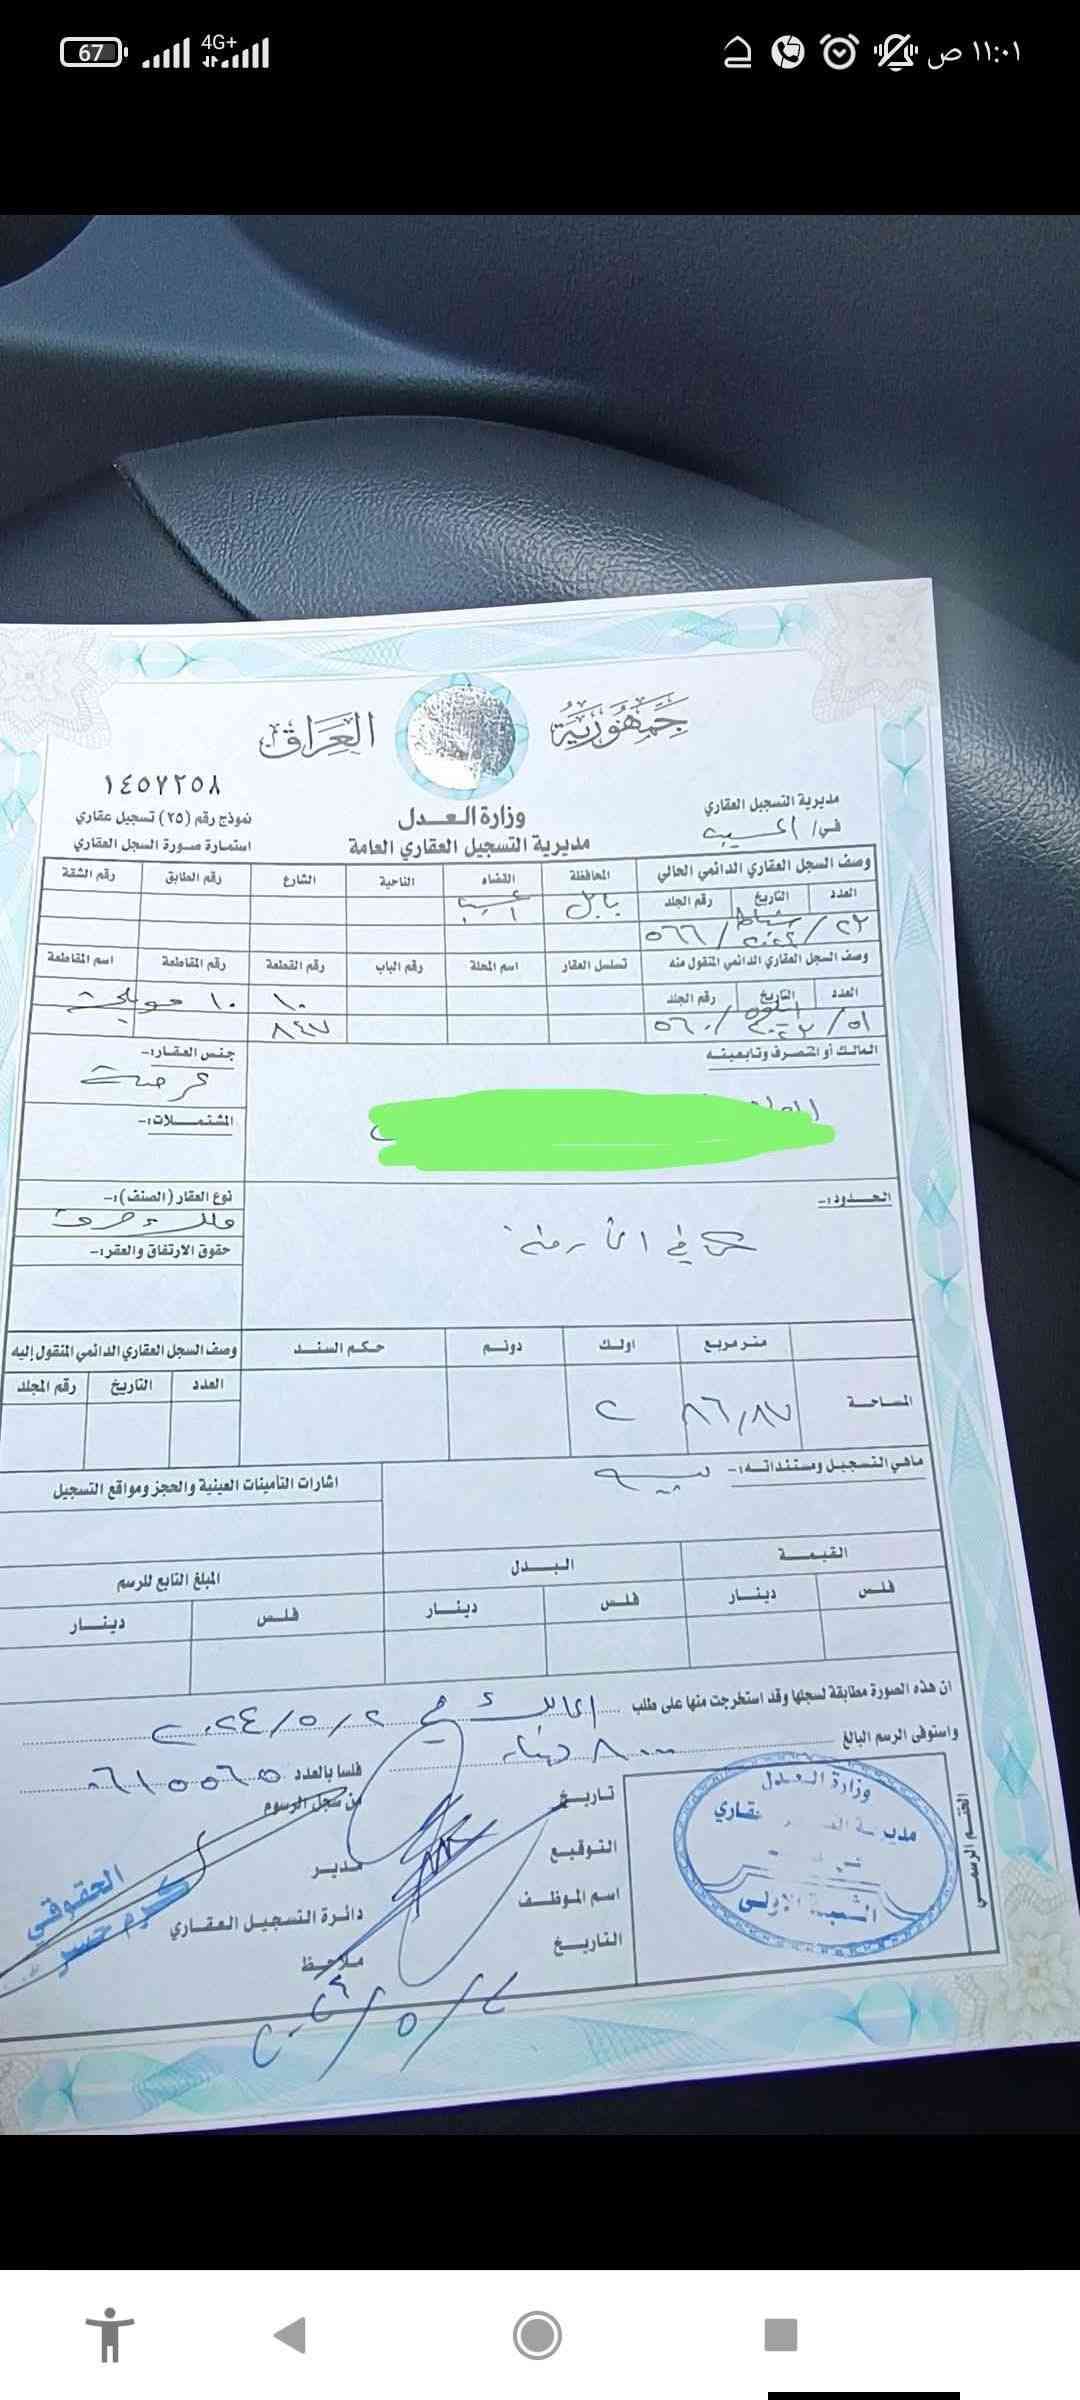 67 4G+ ١١:٠١ ص
جمهورية العراق
١٤٥٧٢٥٨
وزارة العدل
مديرية التسجيل العقاري العامة
مديرية التسجيل العقاري
في/ المسيب
نموذج رقم (٢٥) تسجيل عقاري
استمارة صورة السجل العقاري
وصف السجل العقاري الدائمي الحالي المحافظة القضاء الناحية الشارع رقم الطابق رقم الشقة
العدد التاريخ رقم الجلد بابل
٢٣ / شباط ٢٠٢٤ / ٥٦٦
وصف السجل العقاري الدائمي المنقول منه تسلسل العقار اسم المحلة رقم الباب رقم القطعة رقم المقاطعة اسم المقاطعة
العدد التاريخ رقم الجلد ١٠ ١٠
٥١ / ٥٦٠ ٨٤٧
المالك أو المتصرف وتابعيته جنس العقار:-
عرصة
المشتملات:-
الحدود:- نوع العقار (الصنف):-
ملك صرف
حقوق الارتفاق والعقر:-
متر مربع اولك دونم حكم السند وصف السجل العقاري الدائمي المنقول إليه
العدد التاريخ رقم المجلد
المساحة ٨٦,٨٧ ٢
ماهي التسجيل ومستنداته:- بيع
اشارات التأمينات العينية والحجز ومواقع التسجيل
القيمة البدل المبلغ التابع للرسم
فلس دينار فلس دينار فلس دينار
ان هذه الصورة مطابقة لسجلها وقد استخرجت منها على طلب المالك في ٢/٥/٢٠٢٤
واستوفى الرسم البالغ ٨٠٠٠ دينار فلسا بالعدد ٠٦١٥٥٦٥
من سجل الرسوم
تاريخ
التوقيع مدير
اسم الموظف دائرة التسجيل العقاري
التاريخ ملاحظ
٢/٥/٢٠٢٤
الختم الرسمي
وزارة العدل
الشعبة الاولى
الحقوقي
كرم حسن